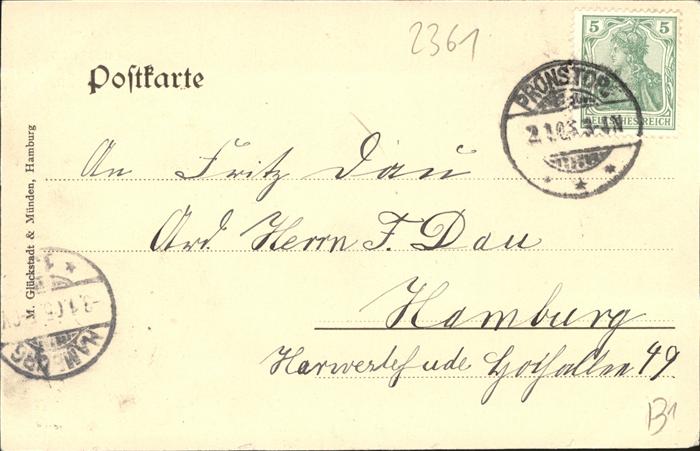 2361
5 5
DEUTSCHES REICH
Postkarte
PRONSTORF
2.1.05. 3-4N
An Fritz Dau
Adr. Herrn F. Dau
Hamburg
49
M. Glückstadt & Münden, Hamburg
HAMBURG
B1